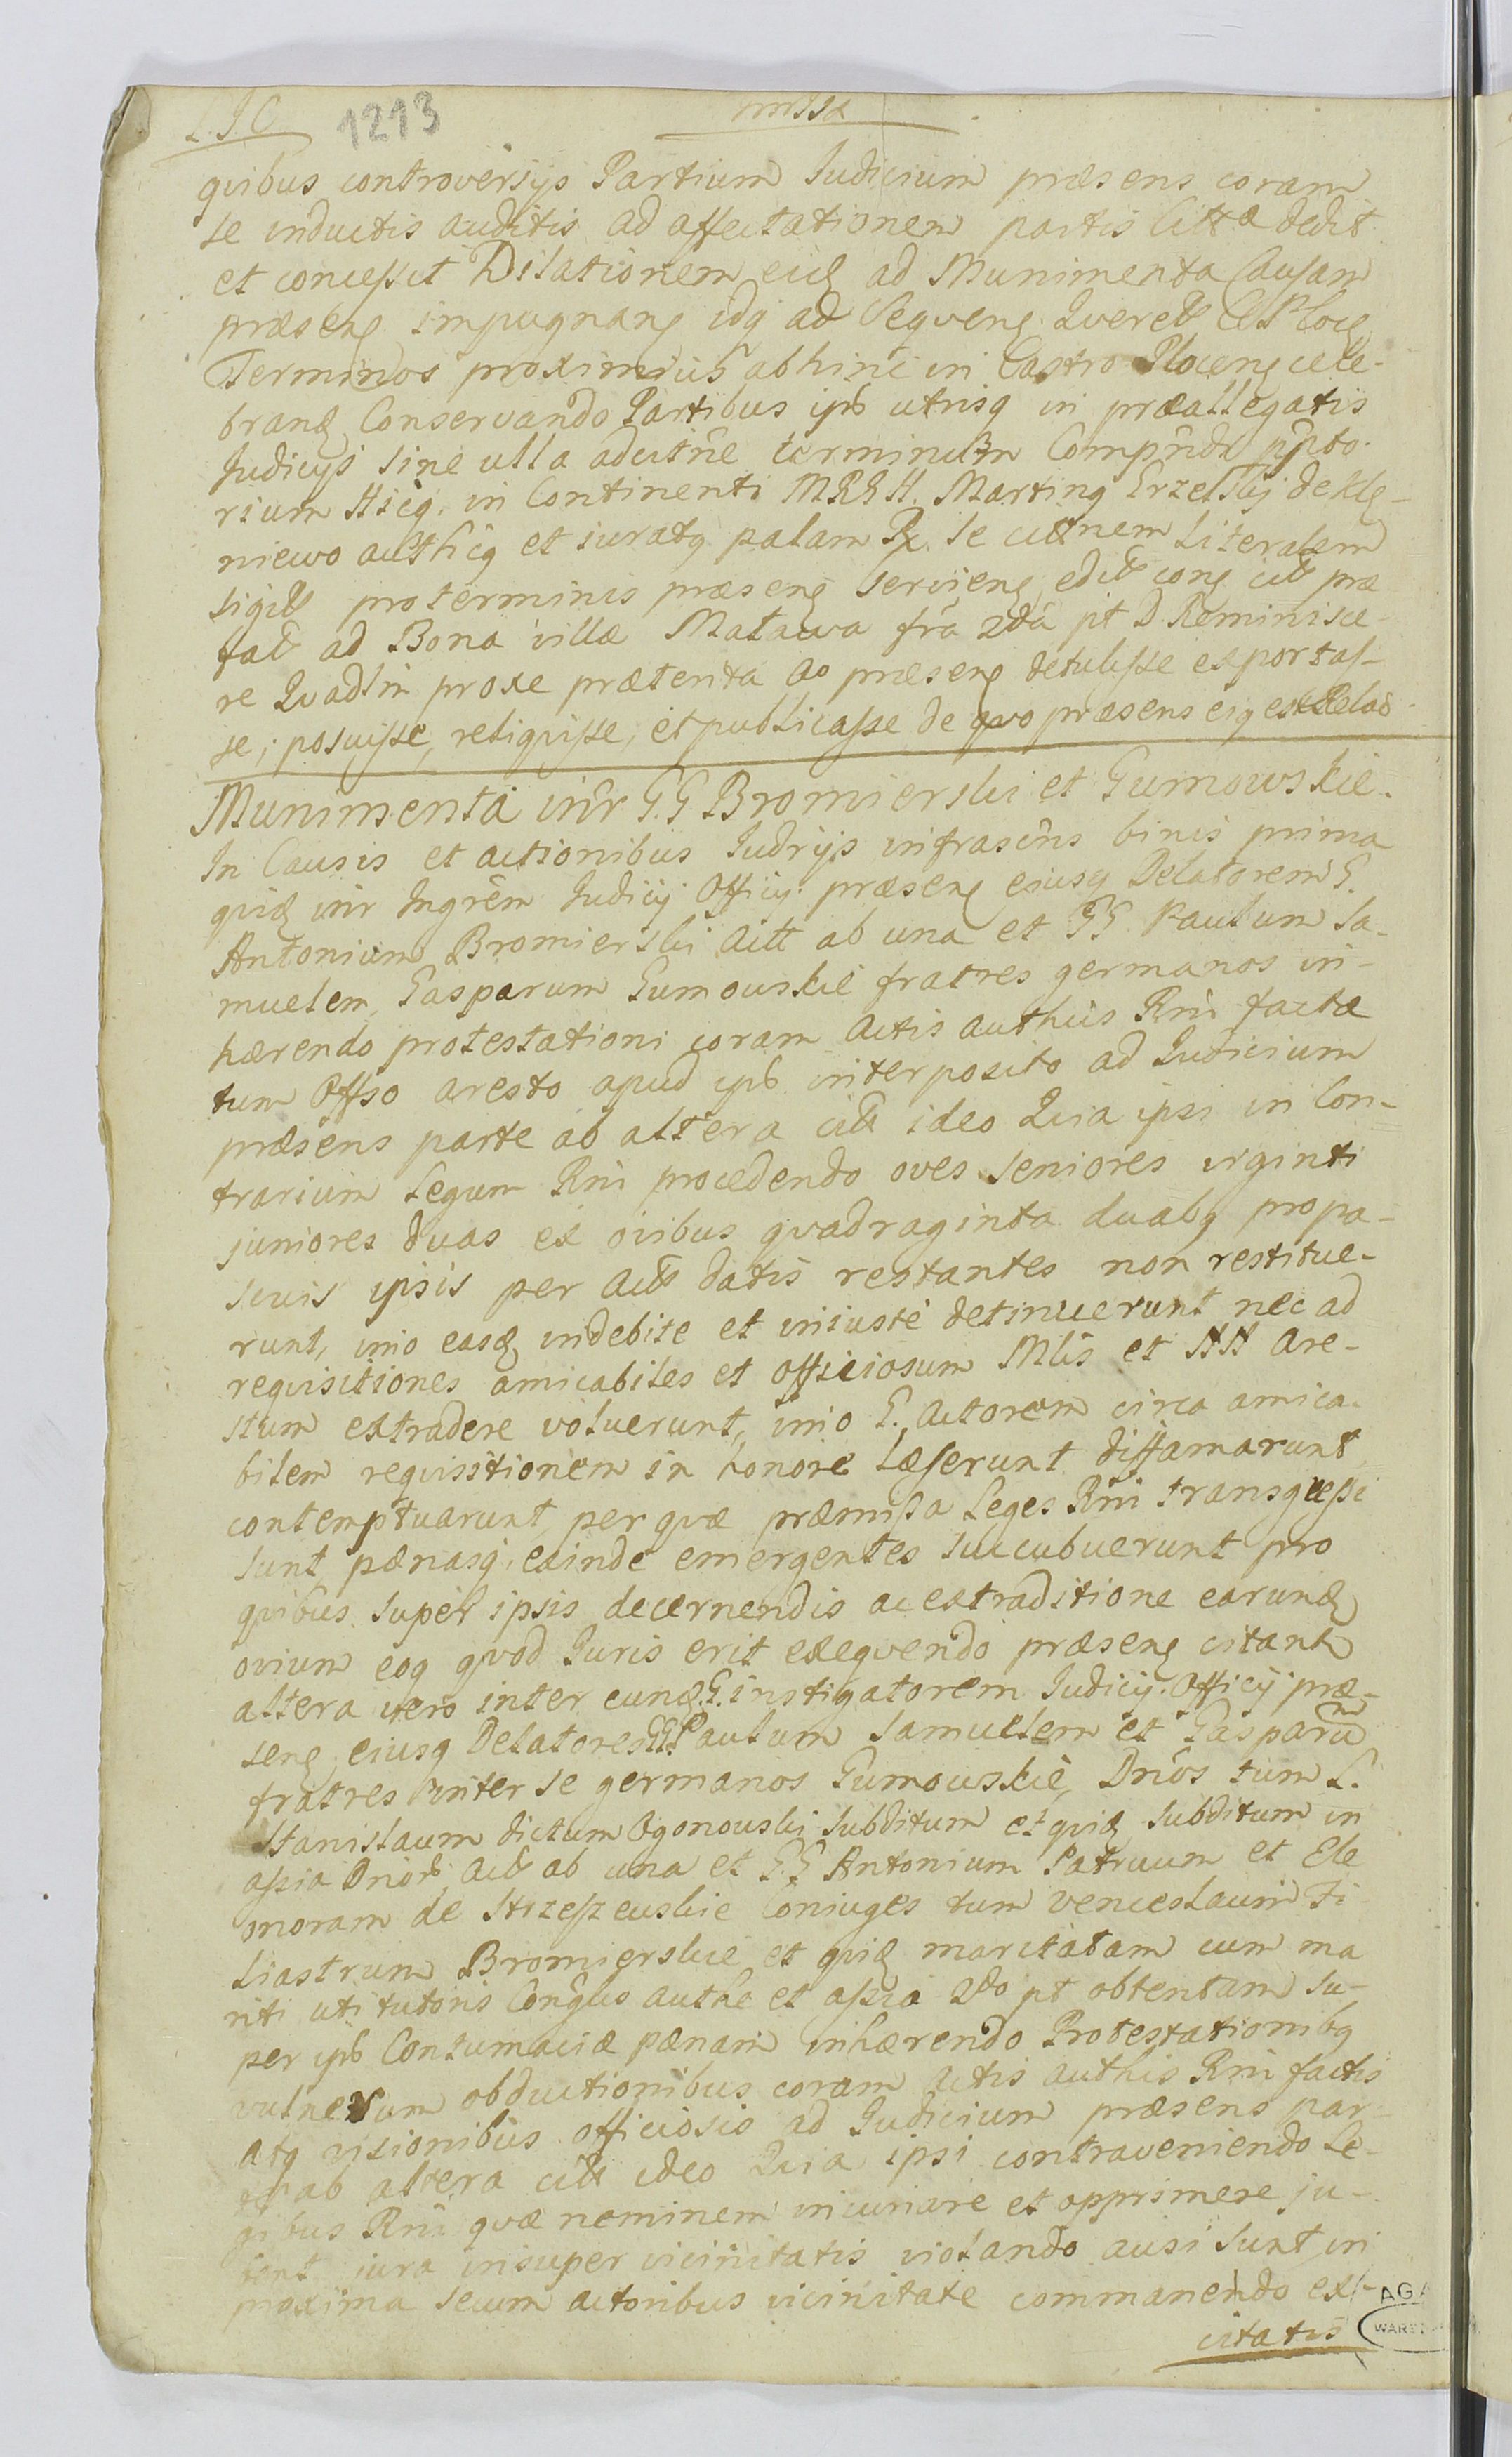 L. J. C. 1213 missa
quibus controversijs Partium Judicium præsens coram
se inductis auditis ad affectationem partis Cittæ dedit
et concessit Dilationem eidq ad Munimenta Causam
præsenq impugnanq idq ad Sequenq Querel
Terminos proximius abhinc in Castro Plocenq cele-
branq Conservando Partibus ipb utrisq in præallegatis
Judicijs sine ulla adcitne terminum Comprndi
rium Hicq in Continenti MRGH. Martinq Erzelskj de Kle-
niewo authcq et juratq palam Rx. se cittnem Literalem
sigilt pro terminis præsenq servienq edit conq citt præ
fat ad Bona villæ Malawa fra 2da pt D Reminisce-
re Quadlm proxe præterita ao præsenq detulisse exportas-
se, posuisse, reliquisse, et publicasse de quo præsens eiq est Relao
Munimenta intr G.G Bromierski et Gumowskie.
In Causis et actionibus Judrijs infrascris binis prima
quidq intr Ingrem Judicij Officij præsenq ejusq Delatorem G.
Antonium Bromierski Actt ab una et GG Paulum Sa-
muelem, Gasparum Gumouskie fratres germanos in-
hærendo protestationi coram Actis authcis Rni factæ
tum Offso aresto apud ipb interposito ad Judicium
præsens parte ab altera citt ideo Quia ipsi in Con-
trarium Legum Rni procedendo oves seniores viginti
juniores duas ex ovibus quadraginta duabq propa-
scuis ipsis per Actt datis restantes non restitue-
runt, imo easdq indebite et injuste detinuerunt nec ad
requisitiones amicabiles et officiosum Mlis et HH are-
stum extradere voluerunt, imo G. Actorem circa amica-
bilem requisitionem in honore læserunt diffamarunt
contemptuarunt, per quæ præmissa Leges Rni transgressi
sunt pænasq exinde emergentes succubuerunt pro
quibus super ipsis decernendis ac extraditione earundq
ovium eoq quod Juris erit exequendo præsenq citantr
altera vero inter eundq. G. instigatorem Judicij Officij præ-
senq ejusq Delatores GG. Paulum Samuelem et Gasparum
fratres inter se germanos Gumouskie, Dnos tum L.
Stanislaum dictum Ogonouski subditum et quidq subditum in
assia Dnorb Actt ab una et G.G Antonium Patruum et Ele
onoram de Strzeszeuskie Coniuges tum Venceslaum Fi-
liastrum Bromierskie et quidq maritatam cum ma
riti uti tutoris Congus authe et assia 2do pt obtentam su-
per ipb Contumaciæ pænam inhærendo Protestationibq
vulnerum obductionibus coram actis authcis Rni factis
atq visionibus officiosis ad Judicium præsens par-
te ab altera citt ideo Quia ipsi contraveniendo Le-
gibus Rni quæ neminem injuriare et opprimere ju-
bent jura insuper vicinitatis violando ausi sunt in
proxima secum actoribus vicinitate commanendo ex-
citatis
AGA
WARS